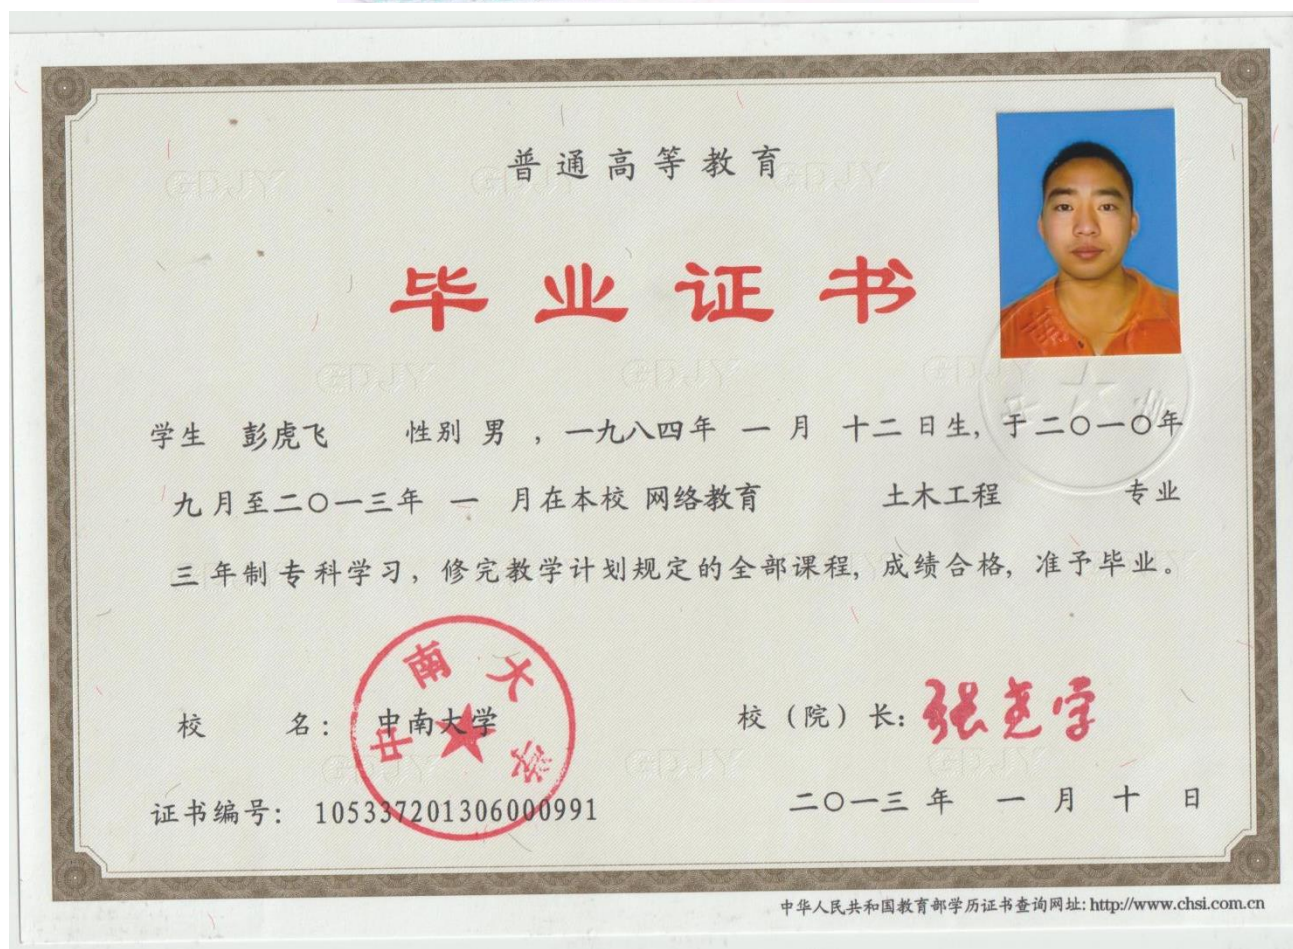 普通高等教育
毕业证书
学生 彭虎飞 性别 男 ，一九八四年 一 月 十二 日生，于二〇一〇年
九月至二〇一三年 一 月在本校 网络教育 土木工程 专业
三 年制 专科学习，修完教学计划规定的全部课程，成绩合格，准予毕业。
中南大学
校 名： 中南大学
校（院）长：张尧学
证书编号： 105337201306000991
二〇一三 年 一 月 十 日
中华人民共和国教育部学历证书查询网址：http://www.chsi.com.cn
GDJY GDJY GDJY
GDJY GDJY GDJY
GDJY GDJY GDJY